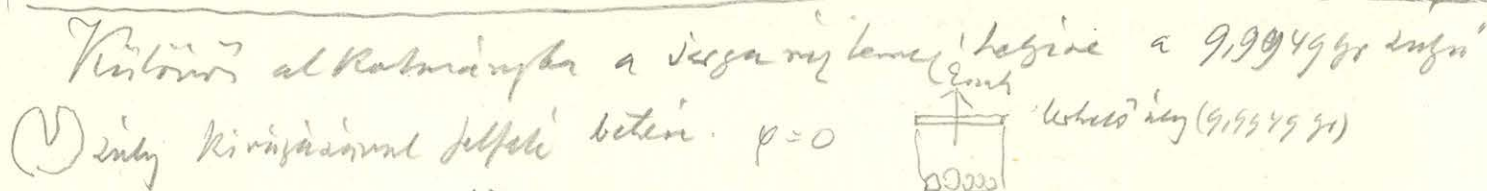 Különös alkotmányba a sárga réz lemez helyére a 9,9949 gr súlyú
(V) súly kivágásával felfelé betéve. φ=0
Észak
terhelő súly (9,9949 gr)